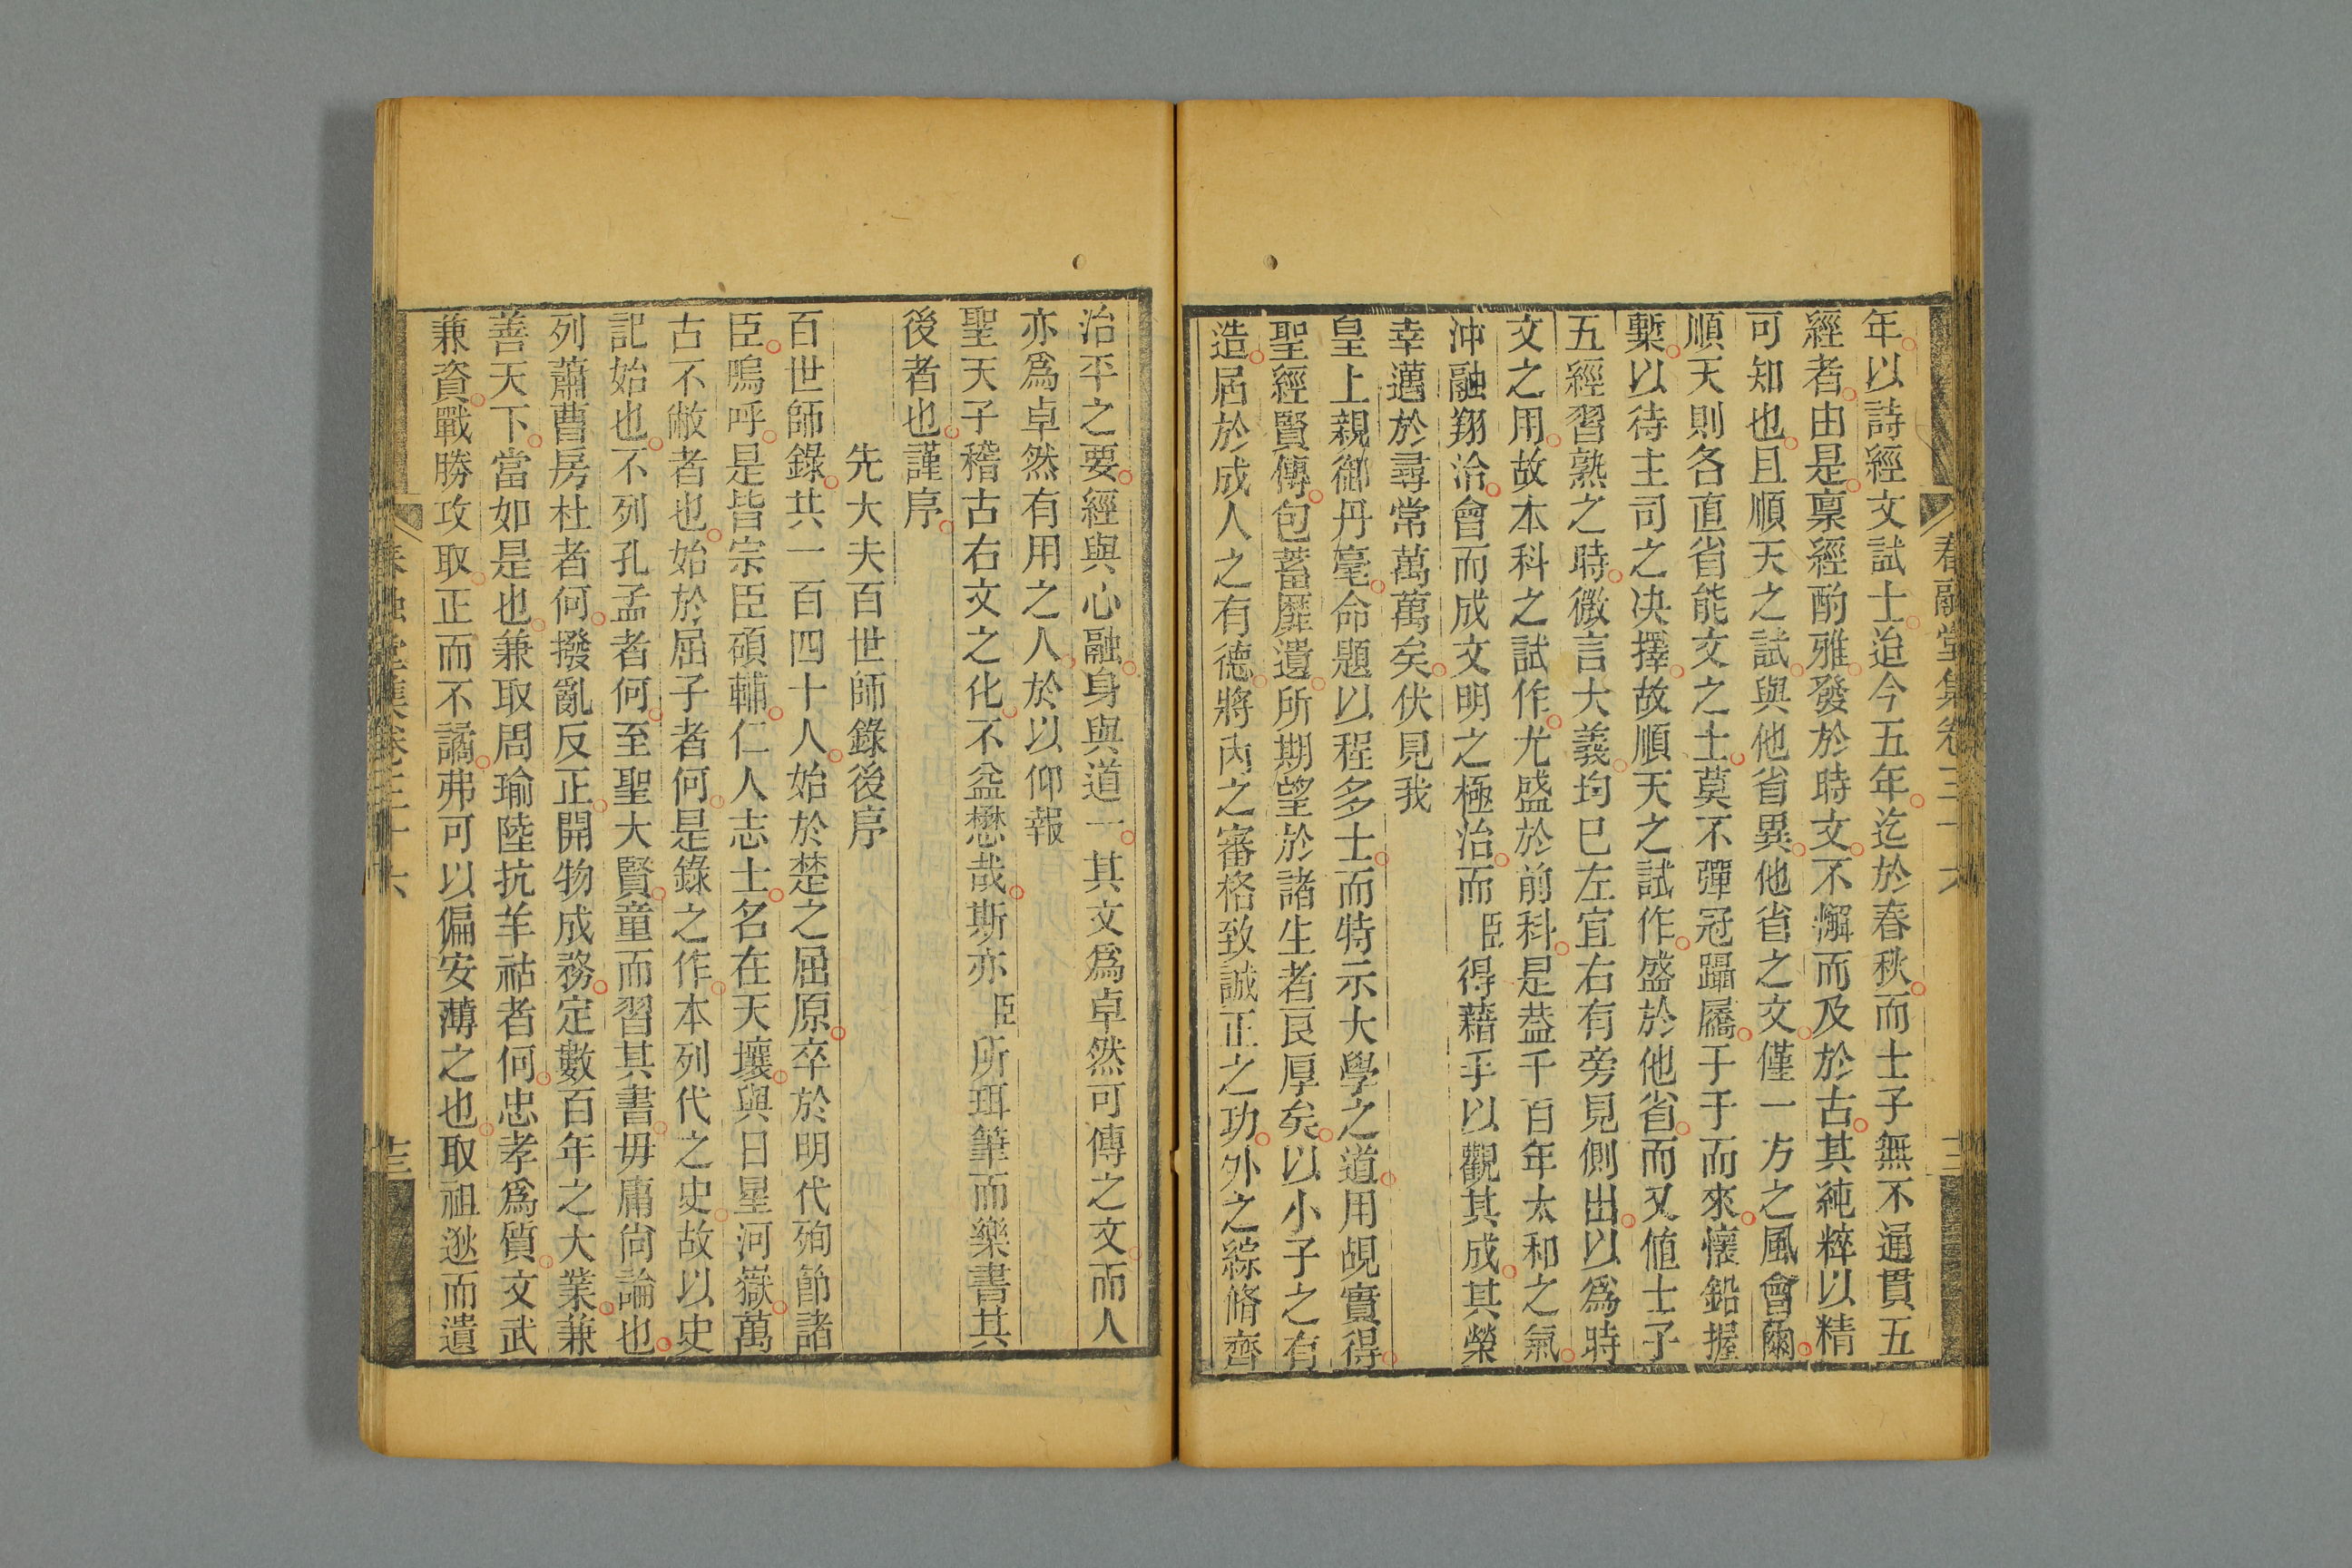 年以詩經文試士迨今五年迄於春秋而士子無不通貫五
經者由是稟經酌雅發於時文不懈而及於古其純粹以精
可知也且順天之試與他省異他省之文僅一方之風會爾
順天則各直省能文之士莫不彈冠躡屩于于而來懷鉛握
槧以待主司之决擇故順天之試作盛於他省而又値士子
五經習熟之時微言大義均巳左宜右有旁見側出以爲時
文之用故本科之試作尤盛於前科是葢千百年太和之氣
沖融翔洽會而成文明之極治而臣得藉手以觀其成其榮
幸邁於尋常萬萬矣伏見我
皇上親御丹毫命題以程多士而特示大學之道用覘實得
聖經賢傳包蓄靡遺所期望於諸生者良厚矣以小子之有
造屆於成人之有德將內之審格致誠正之功外之綜脩齊
春融堂集卷三十六
治平之要經與心融身與道一其文爲卓然可傳之文而人
亦爲卓然有用之人於以仰報
聖天子稽古右文之化不益懋哉斯亦臣所珥筆而樂書其
後者也謹序
先大夫百世師錄後序
百世師錄共一百四十人始於楚之屈原卒於明代殉節諸
臣嗚呼是皆宗臣碩輔仁人志士名在天壤與日星河嶽萬
古不敝者也始於屈子者何是錄之作本列代之史故以史
記始也不列孔孟者何至聖大賢童而習其書毋庸尙論也
列蕭曹房杜者何撥亂反正開物成務定數百年之大業兼
善天下當如是也兼取周瑜陸抗羊祜者何忠孝爲質文武
兼資戰勝攻取正而不譎弗可以偏安薄之也取祖逖而遺
春融堂集卷三十六
十三